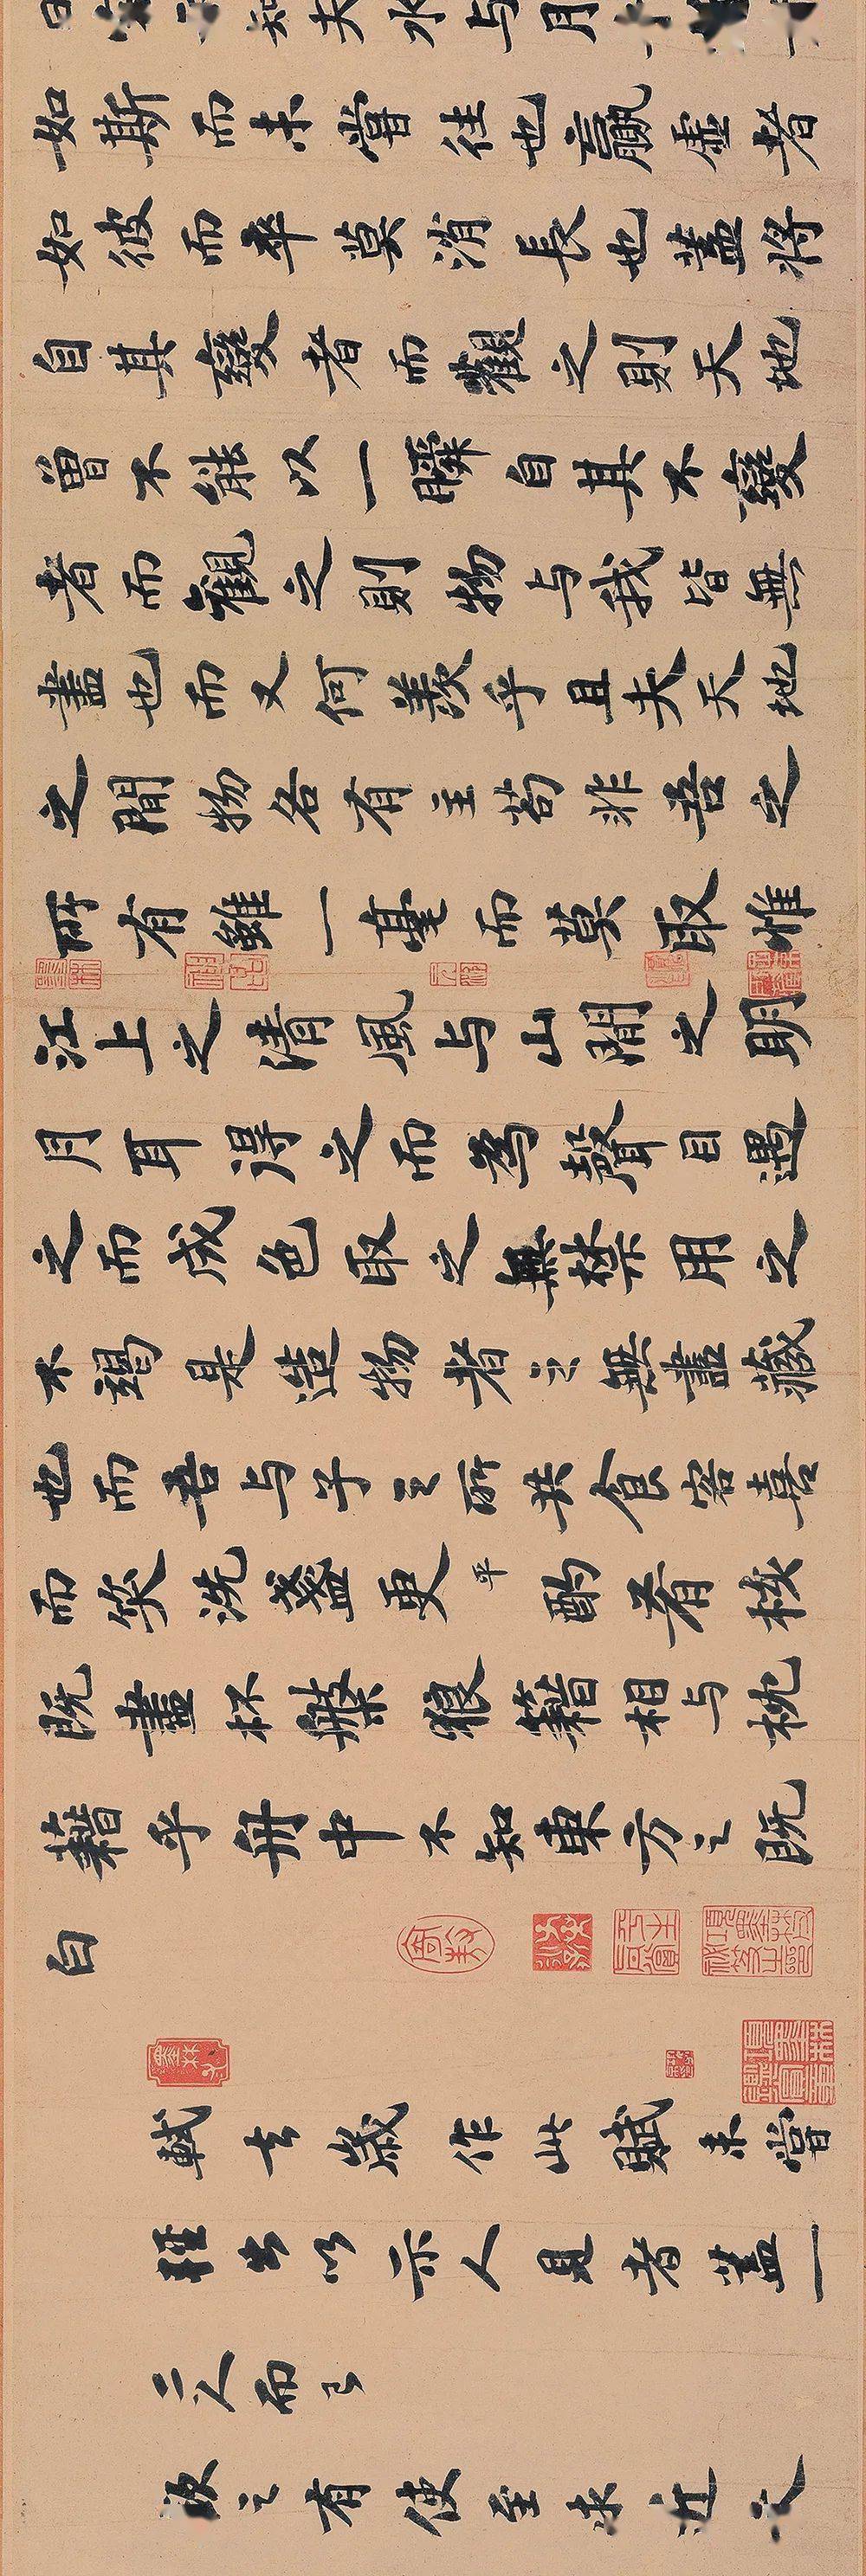 知夫水与月
如斯而未嘗往也贏虛者
如彼而卒莫消長也蓋將
自其變者而觀之則天地
曾不能以一瞬自其不變
者而觀之則物与我皆無
盡也而又何羨乎且夫天地
之間物各有主苟非吾之
所有雖一毫而莫取惟
江上之清風与山間之明
月耳得之而為聲目遇
之而成色取之無禁用之
不竭是造物者之無盡藏
也而吾与子之所共食客喜
而笑洗盞更平酌肴核
既盡杯盤狼籍相与枕
藉乎舟中不知東方之既
白
軾去歲作此賦未嘗
輕出以示人見者蓋一
二人而已
欽之有使至求近文